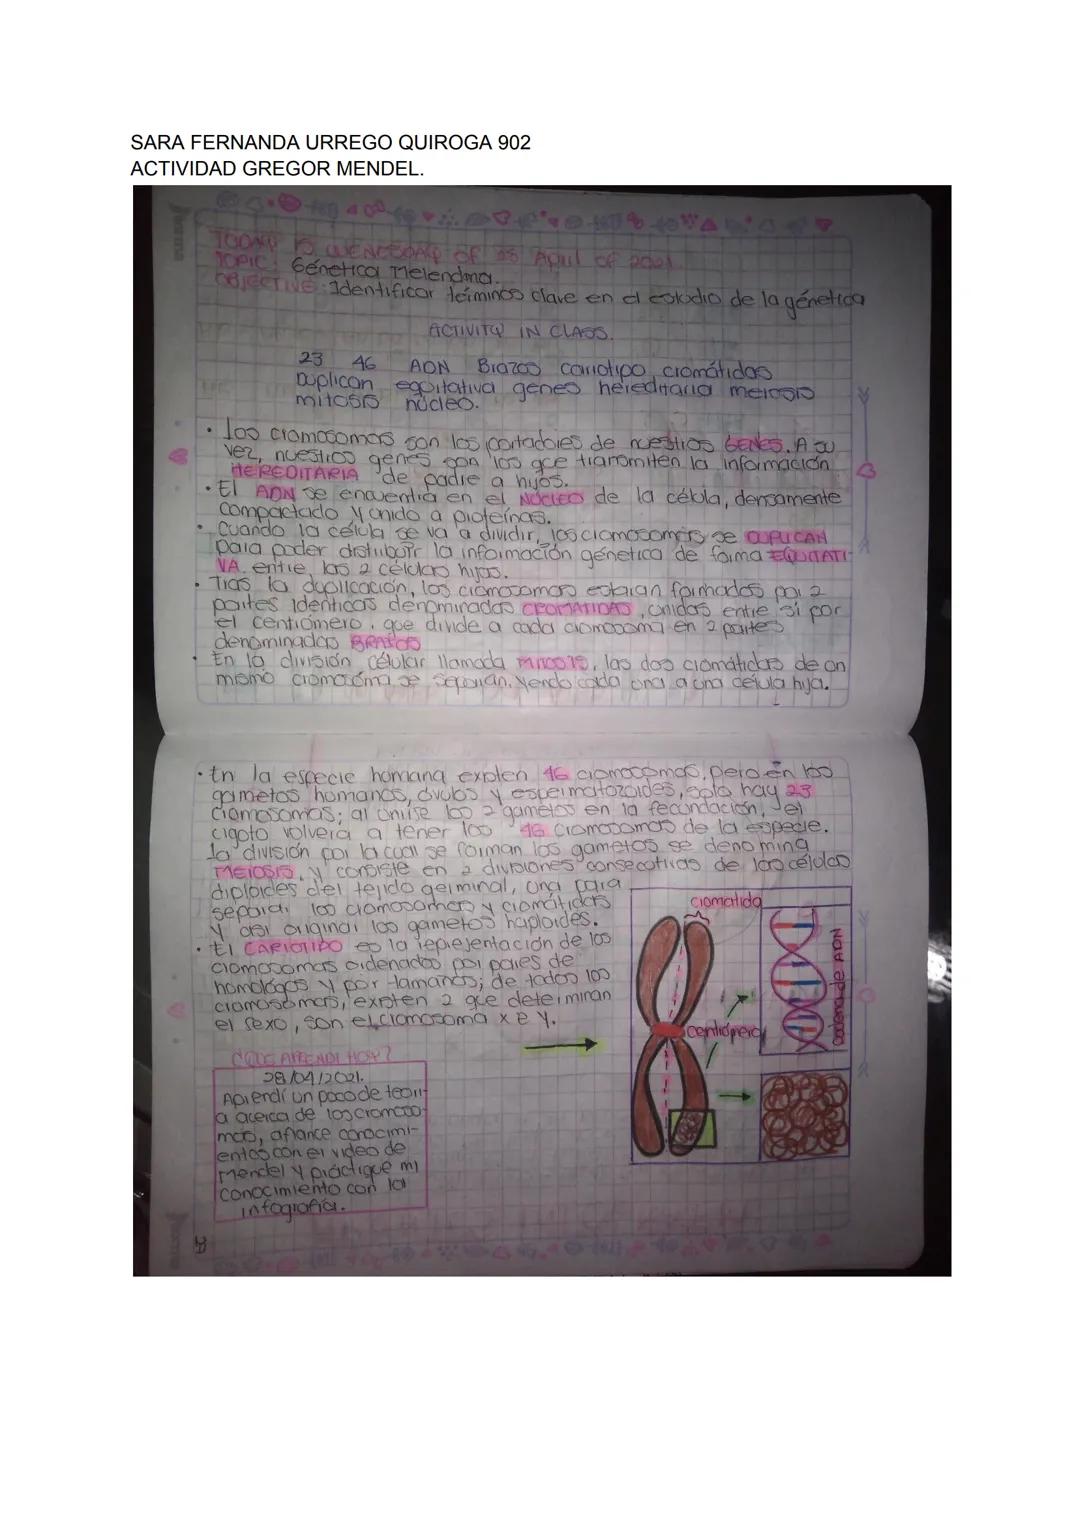 SARA FERNANDA URREGO QUIROGA 902
ACTIVIDAD GREGOR MENDEL.
TODAY IS WENESDAY of 28 April of 2021.
TOPIC: Génetica Melendina.
OBJECTIVE: Identificar términos clave en el estudio de la génetica
ACTIVITY IN CLASS.
23 46 ADN Brazos cariotipo cromátidas
Duplican equitativa genes hereditaria meiosis
mitosis núcleo.
• Los cromosomas son los portadores de nuestros GENES. A su
vez, nuestros genes son los que transmiten la información
HEREDITARIA de padre a hijos.
• El ADN se encuentra en el NÚCLEO de la célula, densamente
compactado y unido a proteínas.
• Cuando la célula se va a dividir, los cromosomas se DUPLICAN
para poder distribuir la información génetica de forma EQUITATI-
VA. entre las 2 células hijas.
• Tras la duplicación, los cromosomas estarian formados por 2
partes identicas denominadas CROMATIDAS, unidas entre si por
el centrómero, que divide a cada cromosoma en 2 partes
denominadas BRAZOS
• En la división célular llamada MITOSIS, las dos cromátidas de un
mismo cromosóma se separan, yendo cada una a una célula hija.
• En la especie humana existen 46 cromosomas, pero en los
gametos humanos, óvulos y espermatozoides, solo hay 23
cromosomas; al unirse los 2 gametos en la fecundación, el
cigoto volverá a tener los 46 cromosomas de la especie.
La división por la cual se forman los gametos se denomina
MEIOSIS, y consiste en 2 divisiones consecutivas de las células
diploides del tejido germinal, una para
separar los cromosomas y cromátidas
y asi originar los gametos haploides.
• El CARIOTIPO es la representación de los
cromosomas ordenados por pares de
homólogos y por tamaños; de todos los
cromosomas, existen 2 que determinan
el sexo, son el cromosoma x e y.
cromatida
centrómero
Cadena de ADN
¿QUE APRENDI HOY?
28/04/2021.
Aprendí un poco de teori-
a acerca de los cromoso-
mas, afiance conocimi-
entos con el video de
Mendel y práctique mi
conocimiento con la
infografía.
29